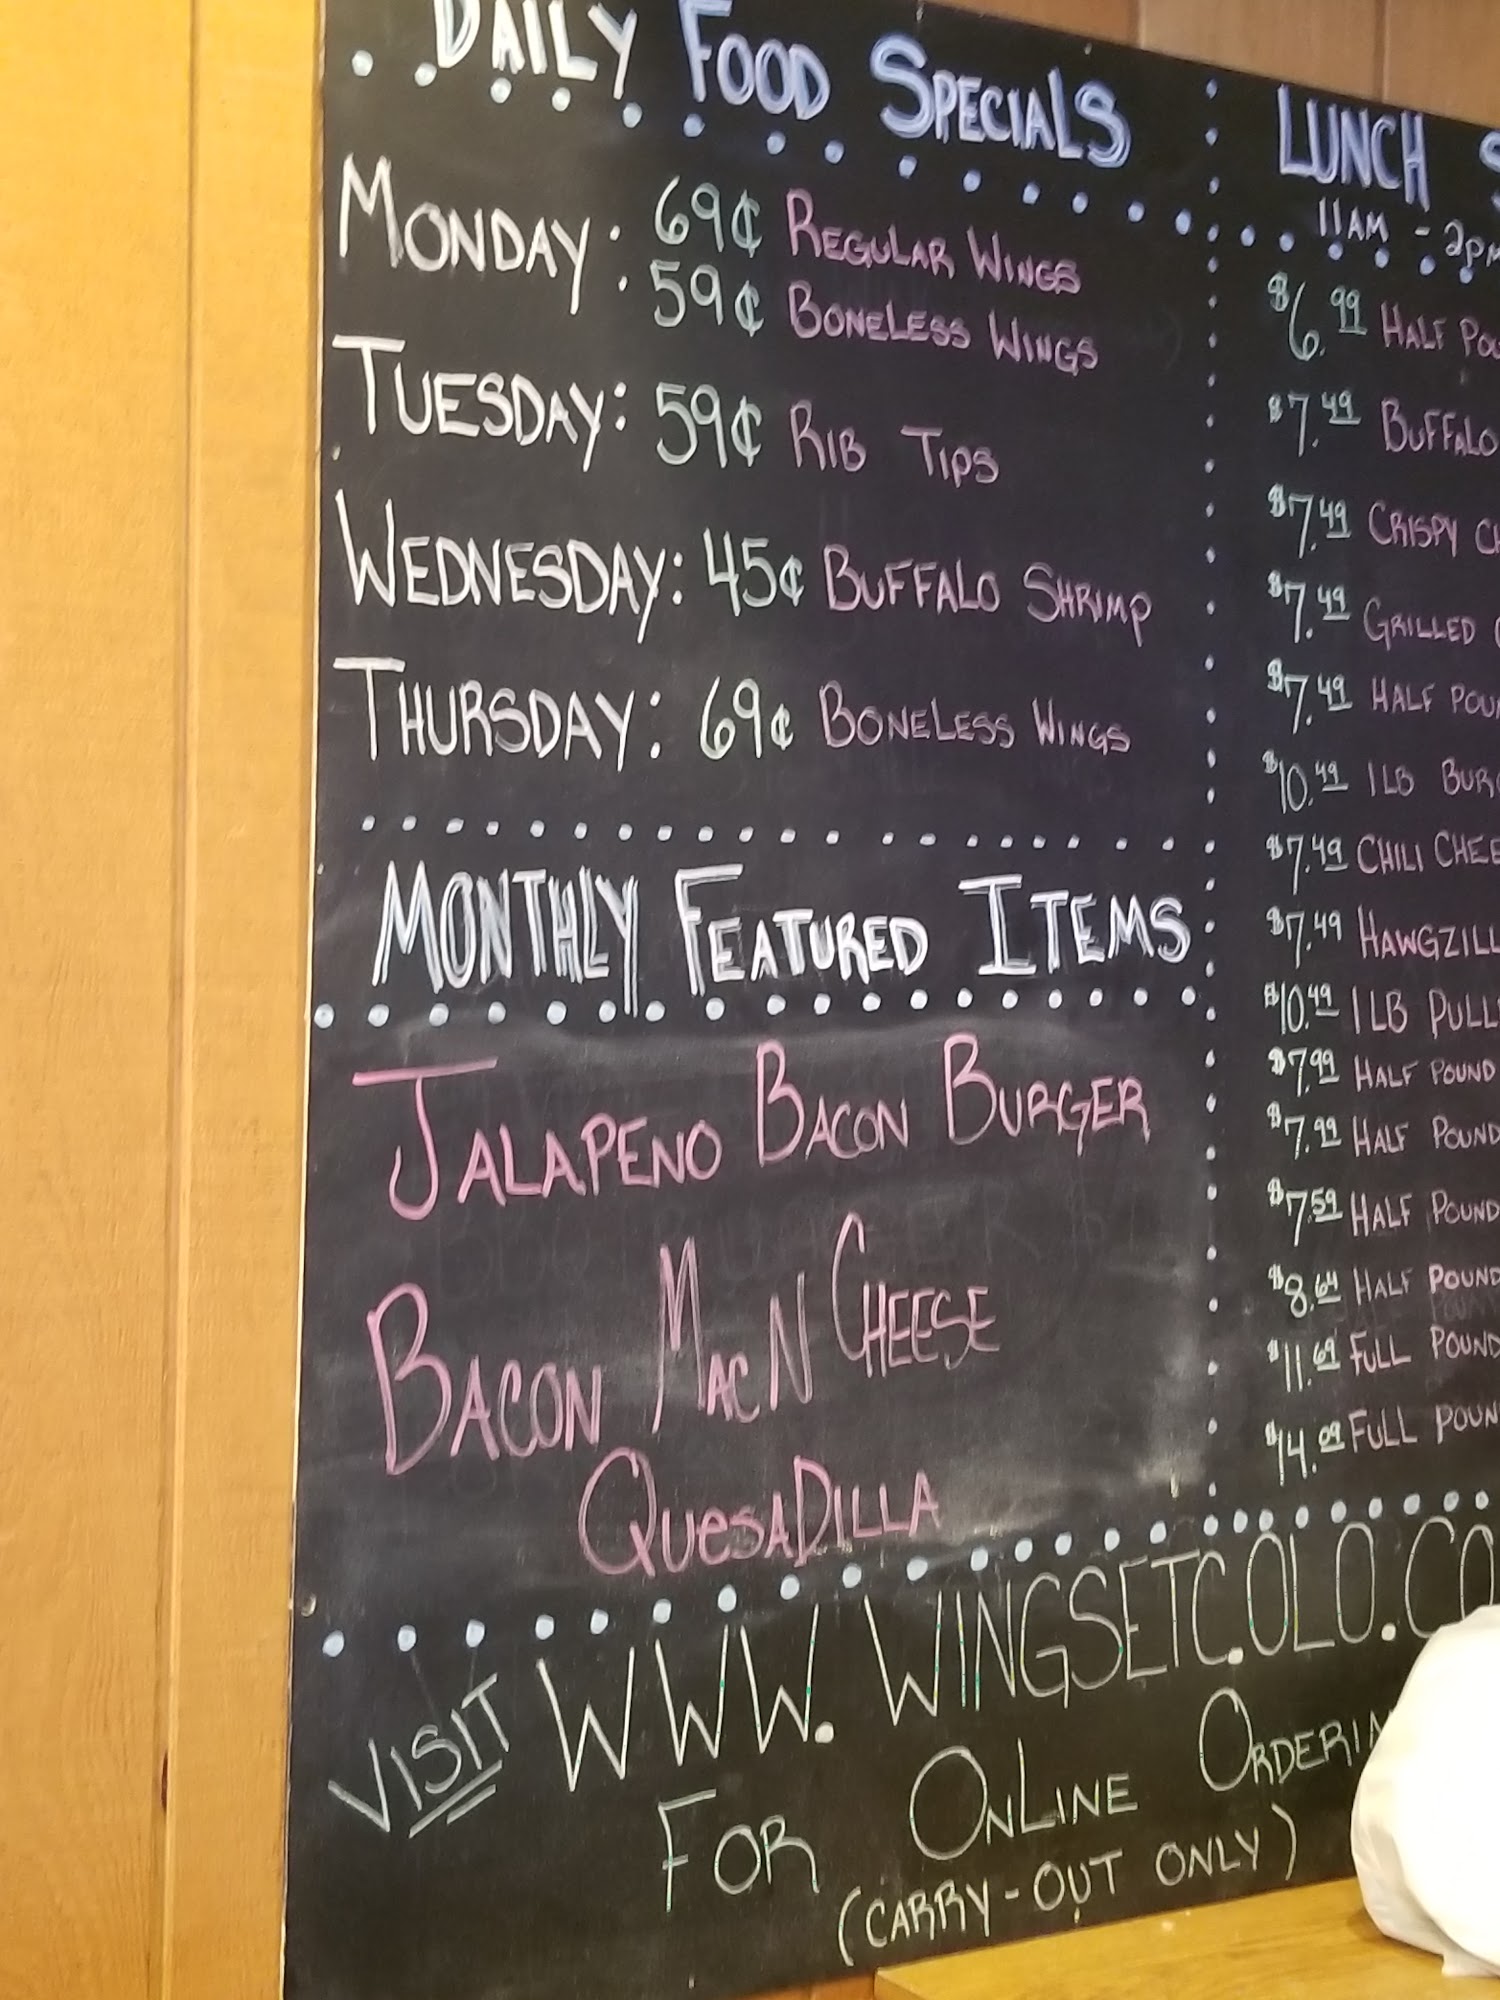 DAILY FOOD SPECIALS
MONDAY: 69¢ REGULAR WINGS
59¢ BONELESS WINGS
TUESDAY: 59¢ RIB TIPS
WEDNESDAY: 45¢ BUFFALO SHRIMP
THURSDAY: 69¢ BONELESS WINGS
MONTHLY FEATURED ITEMS
JALAPENO BACON BURGER
BACON MAC N CHEESE
QUESADILLA
LUNCH S
11AM - 2PM
$6.99 HALF POU
$7.49 BUFFALO
$7.49 CRISPY CH
$7.49 GRILLED
$7.49 HALF POUN
$10.49 1LB BURG
$7.49 CHILI CHEE
$7.49 HAWGZILL
$10.49 1LB PULL
$7.99 HALF POUND
$7.99 HALF POUND
$7.59 HALF POUND
$8.64 HALF POUND
$11.69 FULL POUND
$14.09 FULL POUN
VISIT WWW.WINGSETC.OLO.CO
FOR ONLINE ORDERIN
(CARRY-OUT ONLY)